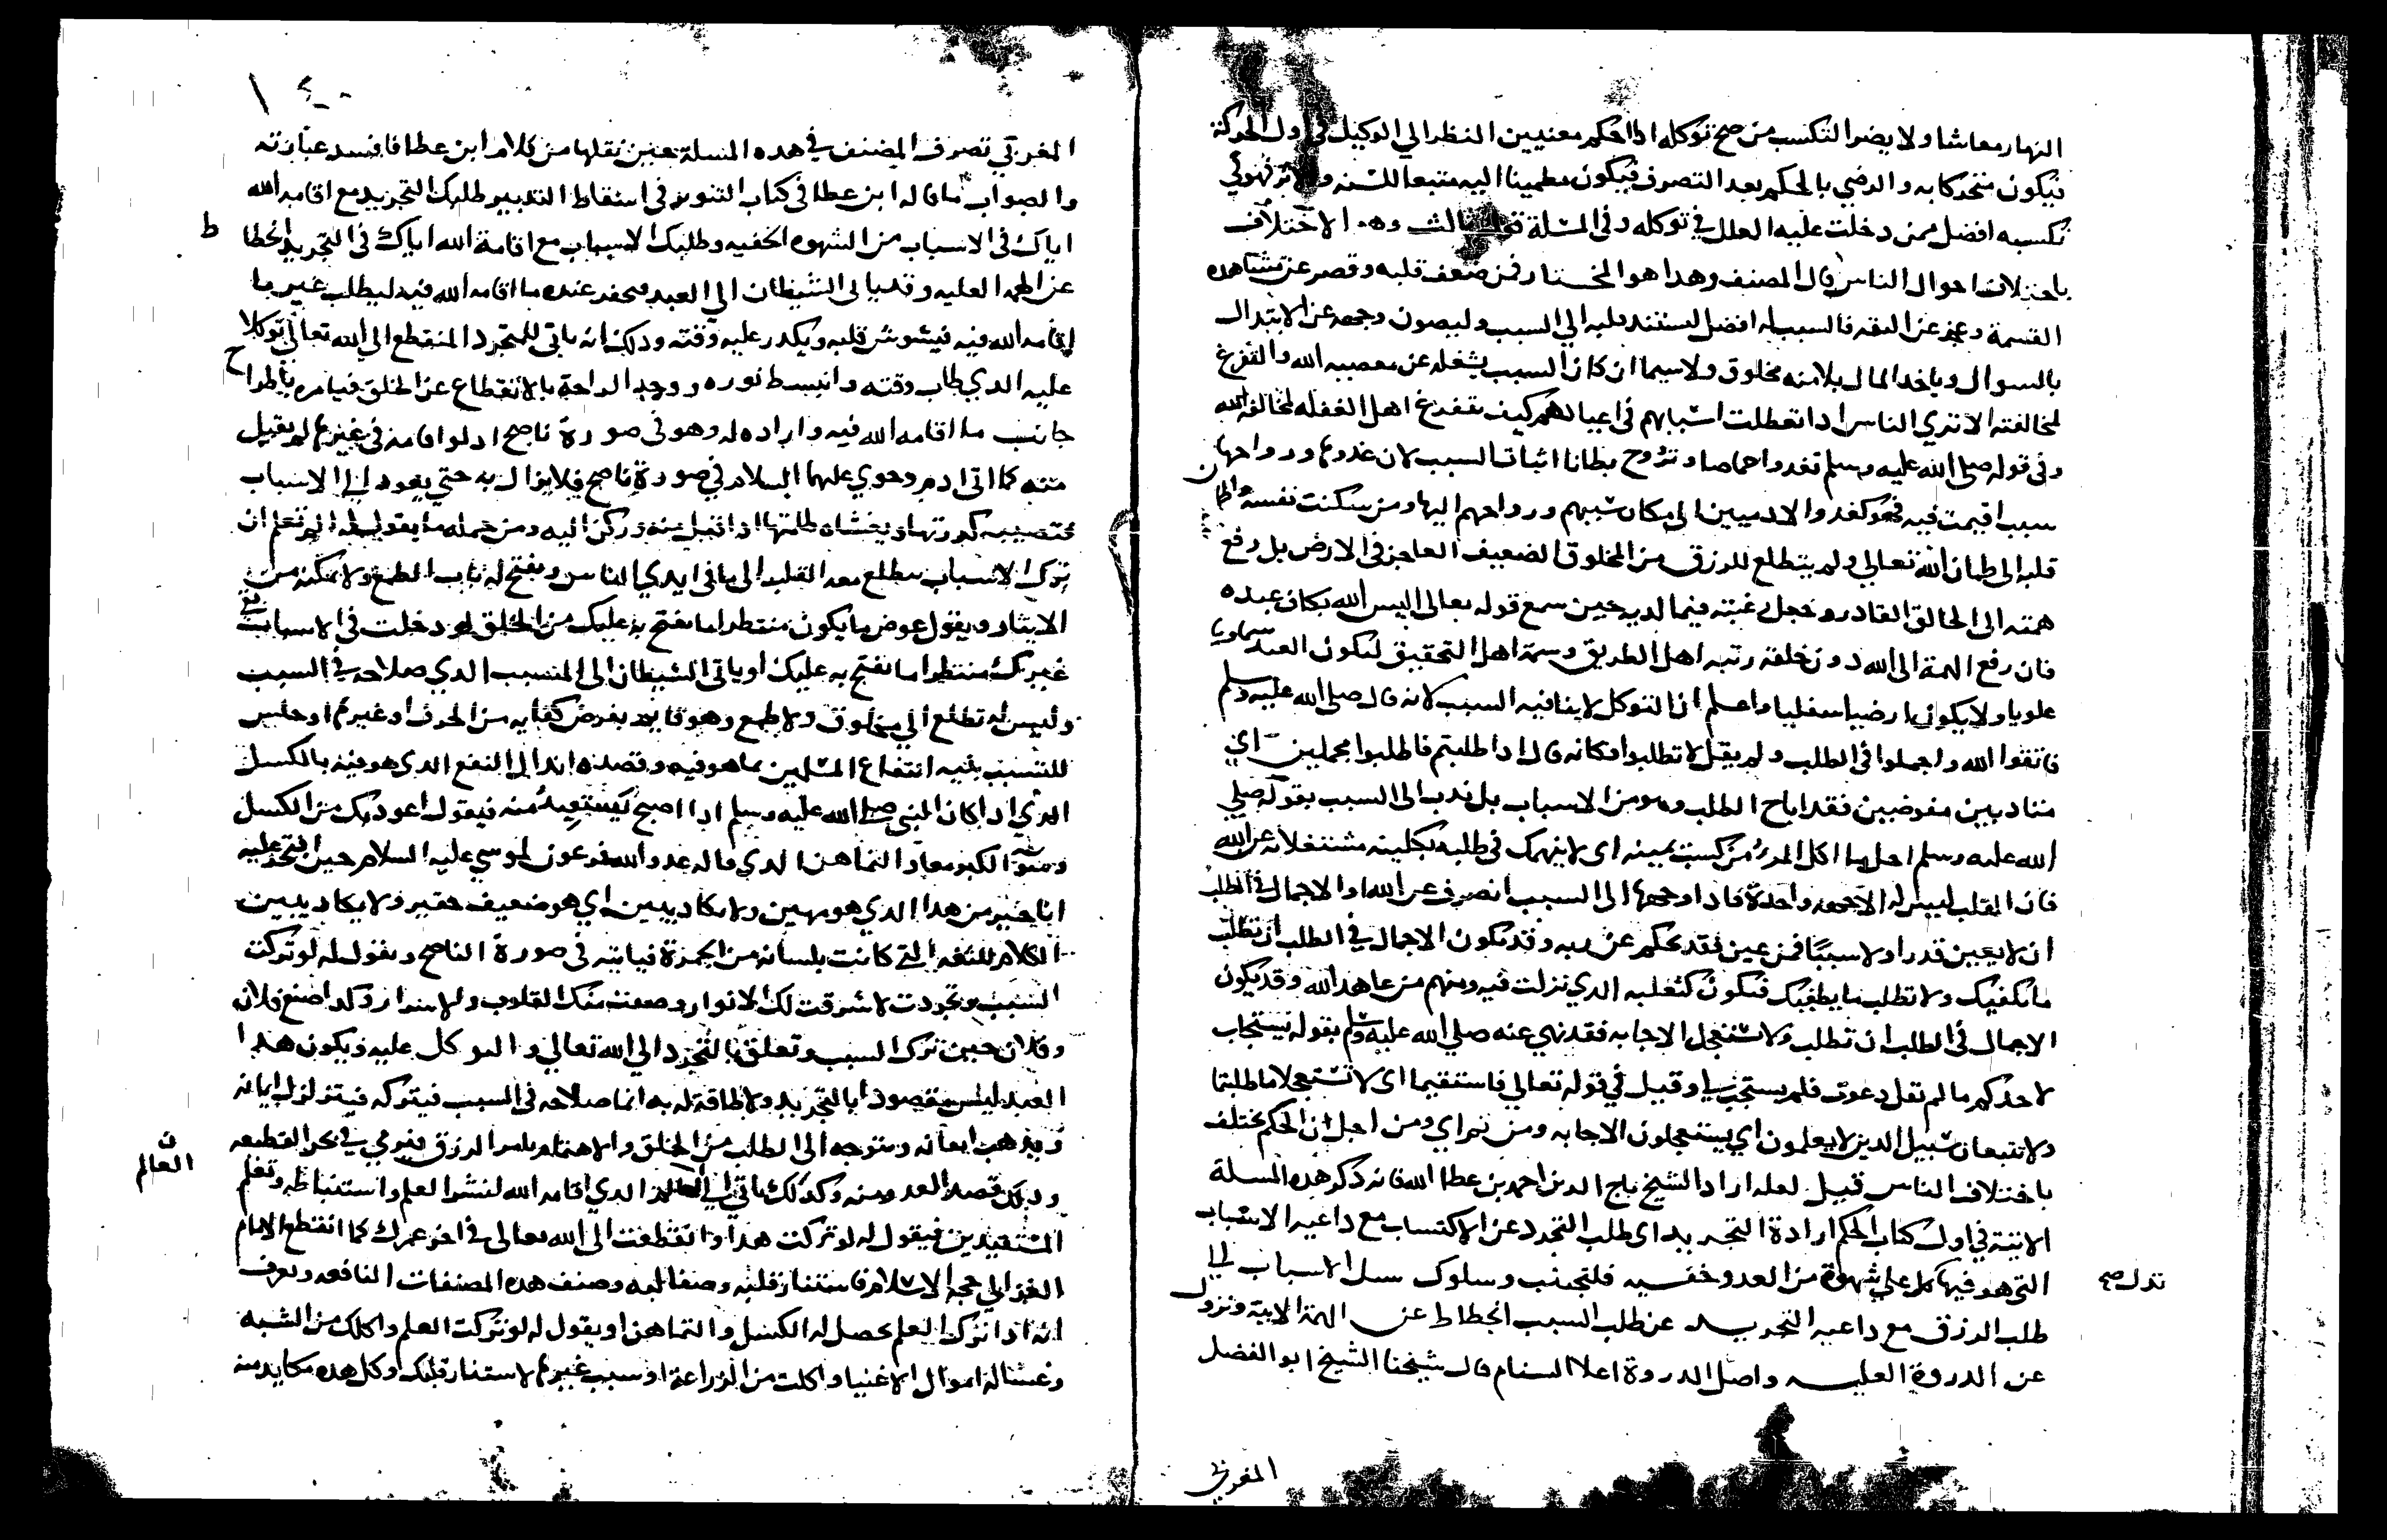 النهار معاشا ولا يضر التكسب من صح توكله اذا احكم معنيين النظر الي الوكيل في اول الحركة
فيكون متحركا به والرضي بالحكم بعد التصرف فيكون مطمينا اليه متبعا للسنه والاثر فهو في
تكسبه افضل ممن دخلت عليه العلل في توكله وفي المسلة قول ثالث وهو الاختلاف
باختلاف احوال الناس قال المصنف وهدا هو المختار فمن ضعف قلبه وقصر عن مشاهده
القسمة وعجز عن الثقه فالسبب له افضل ليستند قلبه الي السبب وليصون وجهه عن الابتدال
بالسوال وياخد المال بلا منه مخلوق ولا سيما ان كان السبب يشغله عن معصيه الله والتفرغ
لمخالفته الا تري الناس ادا تعطلت اسبابهم في اعيادهم كيف تتفرغ اهل الغفله لمخالفه الله
وفي قوله صلي الله عليه وسلم تغدوا خماصا وتروح بطانا اثبات السبب لان غدوها ورواحها
سبب اقيمت فيه فهو كغدو الادميين الي مكان سببهم ورواحهم اليها ومن سكنت نفسه واطمان
قلبه الي ضمان الله تعالي ولم يتطلع للرزق من المخلوق الضعيف العاجز في الارض بل رفع
همته الي الخالق القادر وجعل رغبته فيما لديه حين سمع قوله تعالى اليس الله بكاف عبده
فان رفع الهمة الى الله دون خلقه رتبه اهل الطريق وسمة اهل التحقيق ليكون العبد سماويا
علويا ولا يكون ارضيا سفليا واعلم ان التوكل لا ينافيه السبب لانه قال صلى الله عليه وسلم
فاتقوا الله واجملوا في الطلب ولم يقل لا تطلبوا فكانه قال ادا طلبتم فاطلبوا مجملين اي
متادبين مفوضين فقد اباح الطلب وهو من الاسباب بل ندب الى السبب بقوله صلي
الله عليه وسلم احل ما اكل المرء من كسب يمينه اى لا ينهمك في طلبه بكليته مشتغلا به عن الله
فان القلب ليس له الا وجهه واحدة فادا وجهها الى السبب انصرف عن الله او الاجمال في الطلب
ان لا يعين قدرا ولا سببًا فمن عين فقد تحكم عن ربه وقد يكون الاجمال في الطلب ان تطلب
ما يكفيك ولا تطلب ما يطغيك فتكون كثعلبه الدي نزلت فيه ومنهم من عاهد الله وقد يكون
الاجمال في الطلب ان تطلب ولا تستعجل الاجابه فقد نهي عنه صلي الله عليه وسلم بقوله يستجاب
لاحدكم ما لم يقل دعوت فلم يستجب لي وقيل في قوله تعالي فاستقيما اى لا تستعجلا ما طلبتما
ولا تتبعان سبيل الدين لا يعلمون اي يستعجلون الاجابه ومن ثم راي ومن اجل ان الحكم يختلف
باختلاف الناس قيل لعله اراد الشيخ تاج الدين احمد بن عطا الله فانه ذكر هده المسلة
الاتية في اول كتاب الحكم ارادة التجريد اى طلب التجرد عن الاكتساب مع داعيه الاسباب
التي هو فيها كل على شهوة من العدو خفيه فلتجتنب وسلوك سبل الاسباب لي
تدل صح
طلب الرزق مع داعيه التجريد عن طلب السبب انحطاط عن الهمة الابية ونزول
عن الدروة العليه واصل الدروة اعلا السنام قال شيخنا الشيخ ابو الفضل
المغربي
المغربي تصرف المصنف في هده المسلة حين نقلها من كلام ابن عطا فافسد عبارته
والصواب ما قاله ابن عطا في كتاب التنوير في اسقاط التدبير طلبك التجريد مع اقامه الله
اياك في الاسباب من الشهوه الخفيه وطلبك الاسباب مع اقامة الله اياك في التجريد انحطاط
عن الهمه العليه وقد ياتى الشيطان الي العبد فيحقر عنده ما اقامه الله فيه ليطلب غير ما
اقامه الله فيه فيشوش قلبه ويكدر عليه وقته ودلك انه ياتى للمتجرد المنقطع الى الله تعالى توكلا
عليه الدي طاب وقته وانبسط نوره ووجد الراحة بالانقطاع عن الخلق فيامره باطراح
جانب ما اقامه الله فيه واراده له وهو في صورة ناصح اد لو اقامه في غيرها لم يقبل
منه كما اتى ادم وحوي عليهما السلام في صورة ناصح فلا يزال به حتي يعود الي الاسباب
فتصيبه كدرتها ويغشاه ظلمتها ادا قبل منه وركن اليه ومن جمله ما يقول له الم تعلم ان
ترك الاسباب يتطلع معه القلب الى ما في ايدي الناس ويفتح له باب الطمع ولا يمكنه من
الايثار ويقول عوض ما يكون منتظرا ما يفتح به عليك من الخلق لو دخلت في الاسباب بقي
غيرك منتظرا ما يفتح به عليك او ياتى الشيطان الى المتسبب الدي صلاحه في السبب
وليس له تطلع الي مخلوق ولا طمع وهو قايم بفرض كفايه من الحرف او غيرها او جلس
للتسبب بنيه انتفاع المسلمين بما هو فيه وقصده ابدال النفع الدى هو فيه بالكسل
الدي ادا كان النبى صلى الله عليه وسلم ادا اصبح يستعيد منه فيقول اعود بك من الكسل
وسوء الكبر معاد التماهن الدي قاله عدو الله فرعون لموسي عليه السلام حين افتخر عليه
انا خير من هدا الدي هو مهين ولا يكاد يبين اي هو ضعيف حقير ولا يكاد يبين
الكلام للثغه التي كانت بلسانه من الجمرة فياتيه في صورة الناصح ويقول له لو تركت
السبب وتجردت لاشرقت لك الانوار وصفت منك القلوب والاسرار وكدا صنع فلان
وفلان حين ترك السبب وتعلق بالتجرد الي الله تعالي والتوكل عليه ويكون هدا
العبد ليس مقصودا بالتجريد ولا طاقة له به انما صلاحه في السبب فيتركه فيتزلزل ايمانه
ويذهب ايقانه ويتوجه الى الطلب من الخلق والاهتمام بامر الرزق فيرمي في بحر القطيعه
ودلك قصد العدو منه وكدلك ياتي الي العالم الدي اقامه الله لنشر العلم واستنباطه وتعلم
العالم
المستفيدين فيقول له لو تركت هدا وانقطعت الى الله تعالى في اخر عمرك كما انقطع الامام
الغزالي حجه الاسلام فاستنار قلبه وصفا لبه وصنف هده المصنفات النافعه ويعرف
انه ادا ترك العلم يحصل له الكسل والتماهن او يقول له لو تركت العلم واكلك من الشبه
وغسالة اموال الاغنيا واكلت من الزراعة او سبب غيرها لاستنار قلبك وكل هده مكايد منه